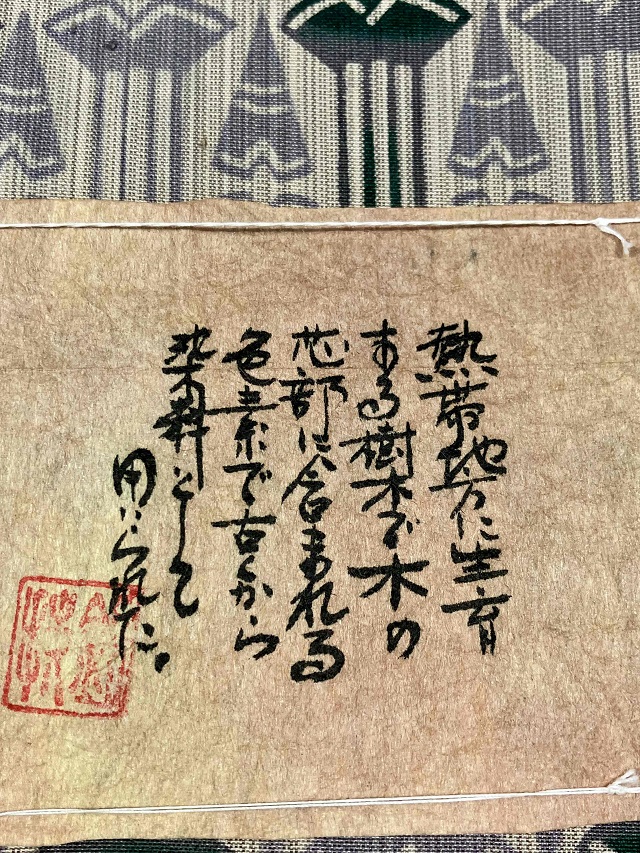 熱帯地方に生育
する樹木で木の
芯部に含まれる
色素で古くから
染料として
用いられた。